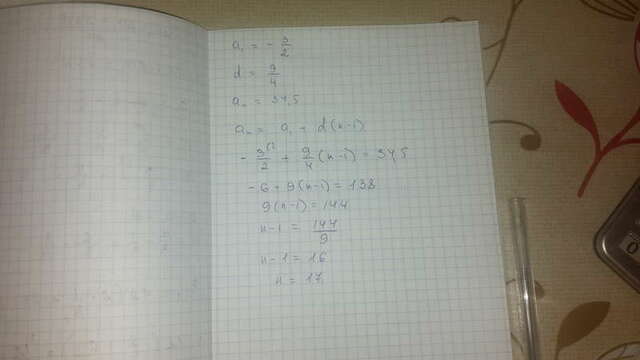 a₁ = - 3/2
d = 9/4
aₙ = 34,5
aₙ = a₁ + d(n-1)
- 3/2 + 9/4 (n-1) = 34,5
- 6 + 9(n-1) = 138
9(n-1) = 144
n-1 = 144/9
n-1 = 16
n = 17